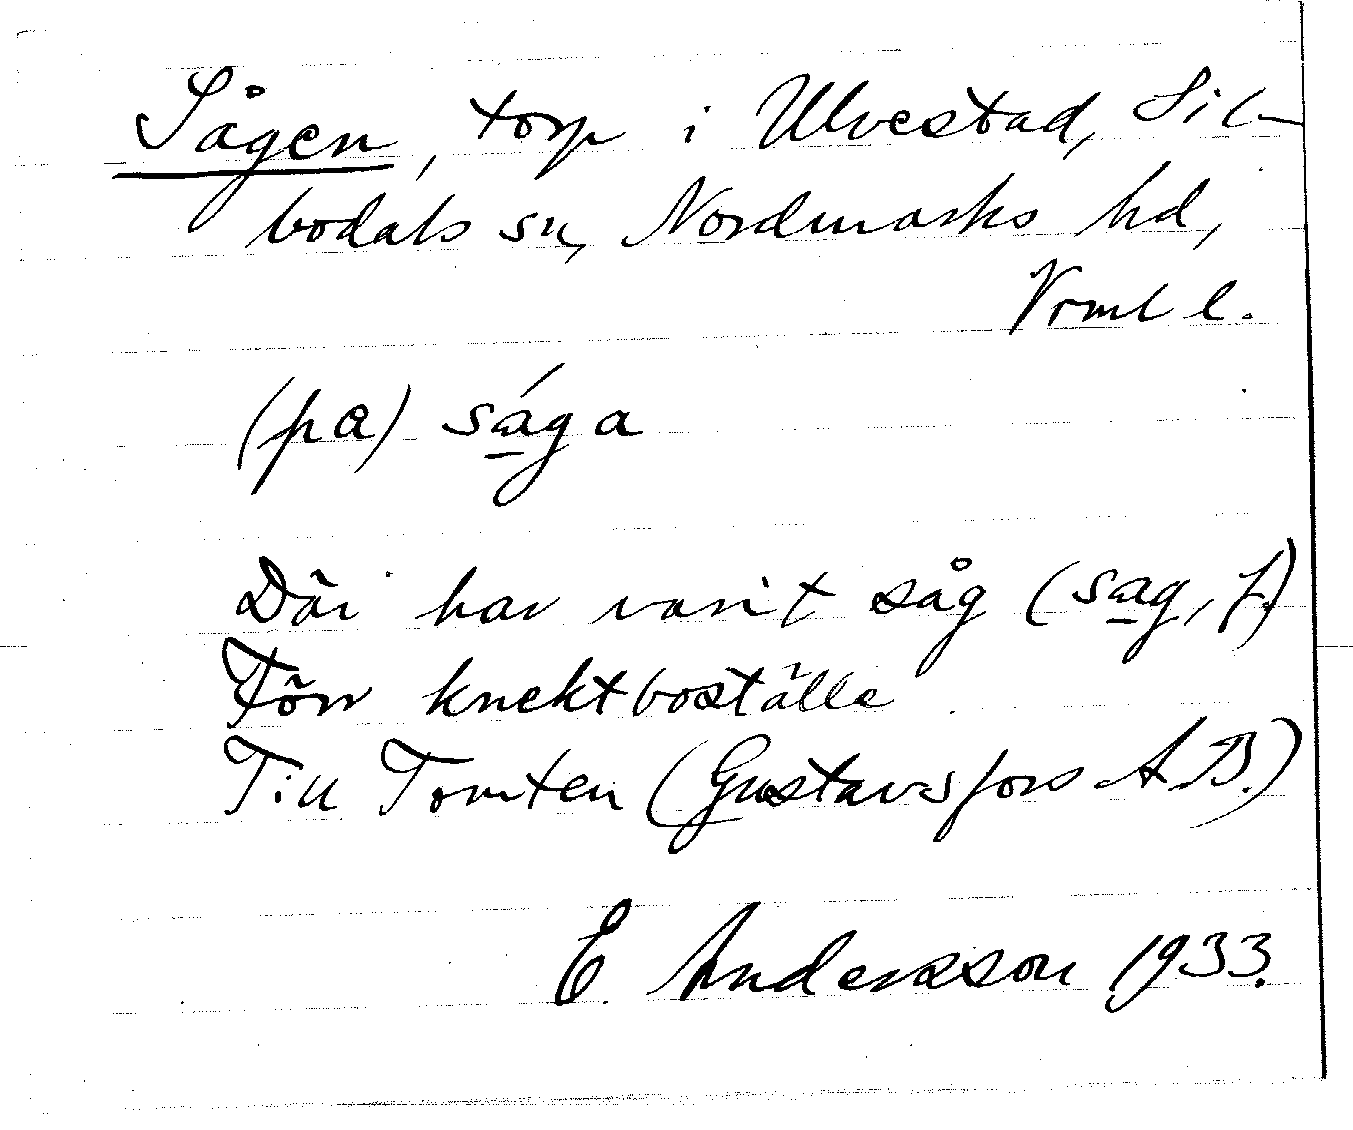 Sågen, torp i Ulvestad, Sil-
bodals sn, Nordmarks hd,
Vrml l.
(pa) sága
Där har varit såg (sag, f.)
Förr knektboställe
Till Tomten (Gustavsfors A.B.)
E. Andersson 1933.